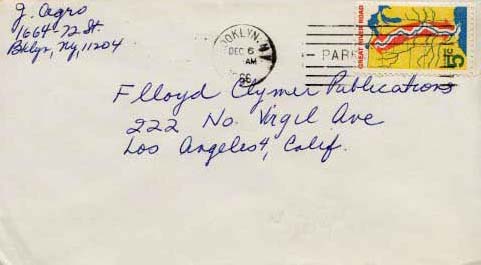 J. Cagro
1664-72 St.
Bklyn, Ny, 11204
OOKLYN, N.Y
DEC 6
AM
1966
PAR
GREAT RIVER ROAD
5c
Flloyd Clymer Publications
222 No. Virgil Ave
Los Angeles 4, Calif.